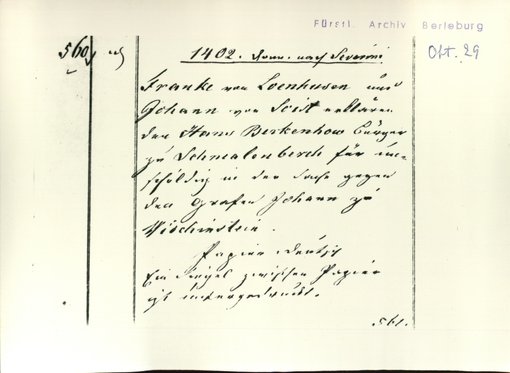 Fürstl. Archiv Berleburg
Okt. 29
560
1402. Donn. nach Severini
Franke von Loenhusen und
Johann von Soist erklären
den Hans Berkenhow Bürger
zu Schmalenberch für un-
schuldig in der Sache gegen
den Grafen Johann zu
Witchinstein.
Papier deutsch
Ein Siegel zwischen Papier
ist untergedruckt.
561.